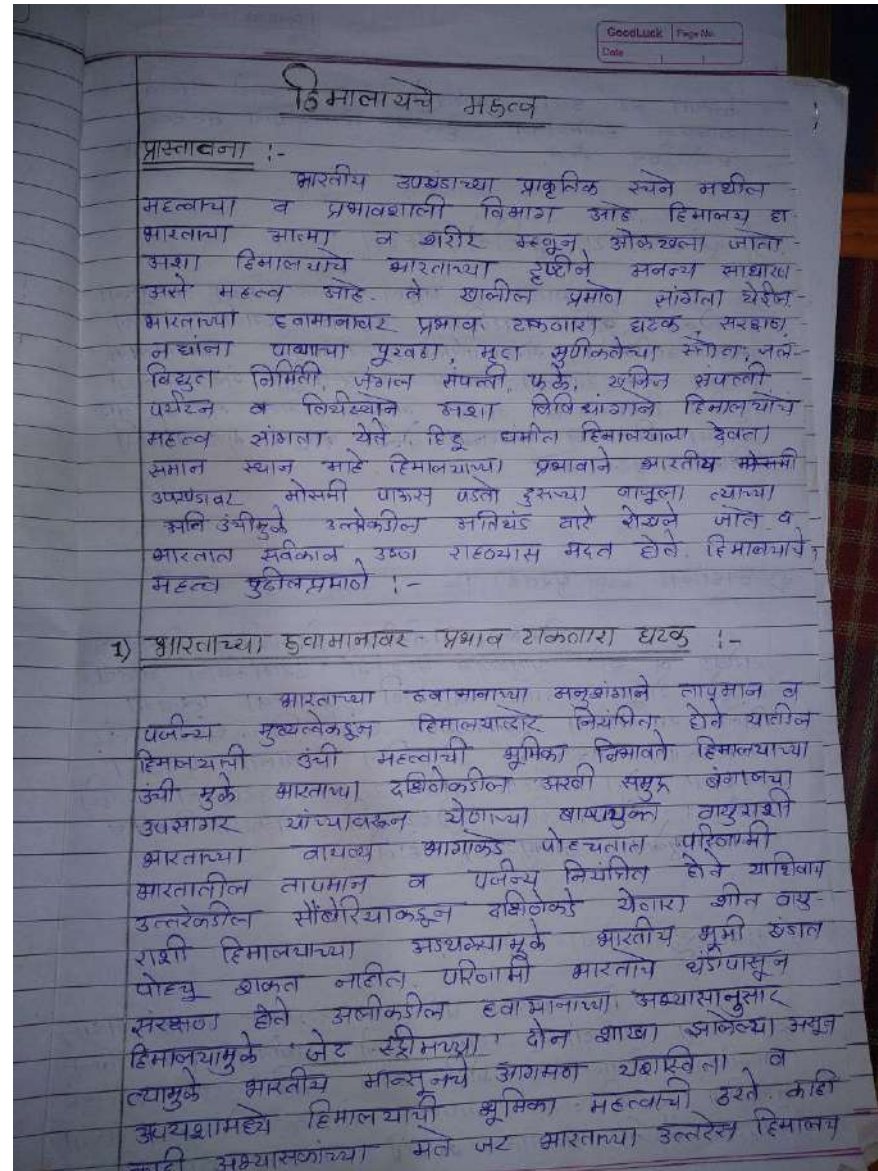 GoodLuck Page No.
Date
हिमालयाचे महत्व
प्रास्तावना :-
भारतीय उपखंडाच्या प्राकृतिक रचने मधील
महत्वाचा व प्रभावशाली विभाग आहे हिमालय हा
भारताचा आत्मा व शरीर म्हणून ओळखला जातो.
अशा हिमालयाचे भारताच्या दृष्टीने अनन्य साधारण
असे महत्व आहे. ते खालील प्रमाणे सांगता येईल.
भारताच्या हवामानावर प्रभाव टाकणारा घटक, संरक्षण,
नद्यांना पाण्याचा पुरवठा, मृदा सुपीकतेचा स्त्रोत, जल-
विद्युत निर्मिती, जंगल संपत्ती, फळे, खनिज संपत्ती
पर्यटन व तिर्थस्थाने अशा विविधांगाने हिमालयाचे
महत्व सांगता येते. हिंदू धर्मात हिमालयाला देवता
समान स्थान आहे हिमालयाच्या प्रभावाने भारतीय
उपखंडावर मोसमी पाऊस पडतो दुसऱ्या बाजूला त्याच्या
अति उंचीमुळे उत्तरेकडील अतिथंड वारे रोखले जाते व
भारतात सर्वकाळ उष्ण राहण्यास मदत होते. हिमालयाचे
महत्व पुढीलप्रमाणे :-
1) भारताच्या हवामानावर प्रभाव टाकणारा घटक :-
भारताच्या हवामानाच्या अनुषंगाने तापमान व
पर्जन्य मुख्यत्वेकडून हिमालयाद्वारे नियंत्रित होते यातील
हिमालयाची उंची महत्वाची भूमिका निभावते हिमालयाच्या
उंची मुळे भारताच्या दक्षिणेकडील अरबी समुद्र बंगालचा
उपसागर यांच्यावरून येणाऱ्या बाष्पयुक्त वायुराशी
भारताच्या वायव्य भागाकडे पोहचतात परिणामी
भारतातील तापमान व पर्जन्य नियंत्रित होते याशिवाय
उत्तरेकडील सौबेरियाकडून दक्षिणेकडे येणारा शीत वायु-
राशी हिमालयाच्या अडथळ्यामुळे भारतीय भूमी खंडात
पोहचु शकत नाहीत. परिणामी भारताचे थंडीपासून
संरक्षण होते. अलीकडील हवामानाच्या अभ्यासानुसार
हिमालयामुळे 'जेट स्ट्रीमच्या' दोन शाखा झालेल्या असून
त्यामुळे भारतीय मान्सूनचे आगमण यशस्विता व
अपयशामध्ये हिमालयाची भूमिका महत्वाची ठरते. काही
काही अभ्यासकांच्या मते जर भारताच्या उत्तरेस हिमालय